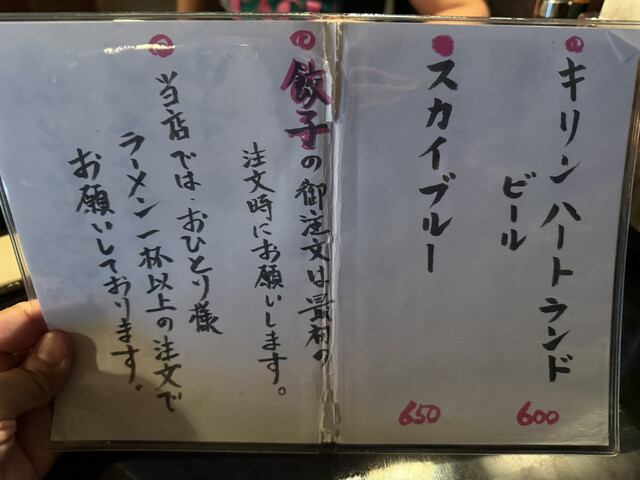 キリンハートランド
ビール
600
スカイブルー
650
餃子の御注文は最初の
注文時にお願いします。
当店では、おひとり様
ラーメン一杯以上の注文で
お願いしております。